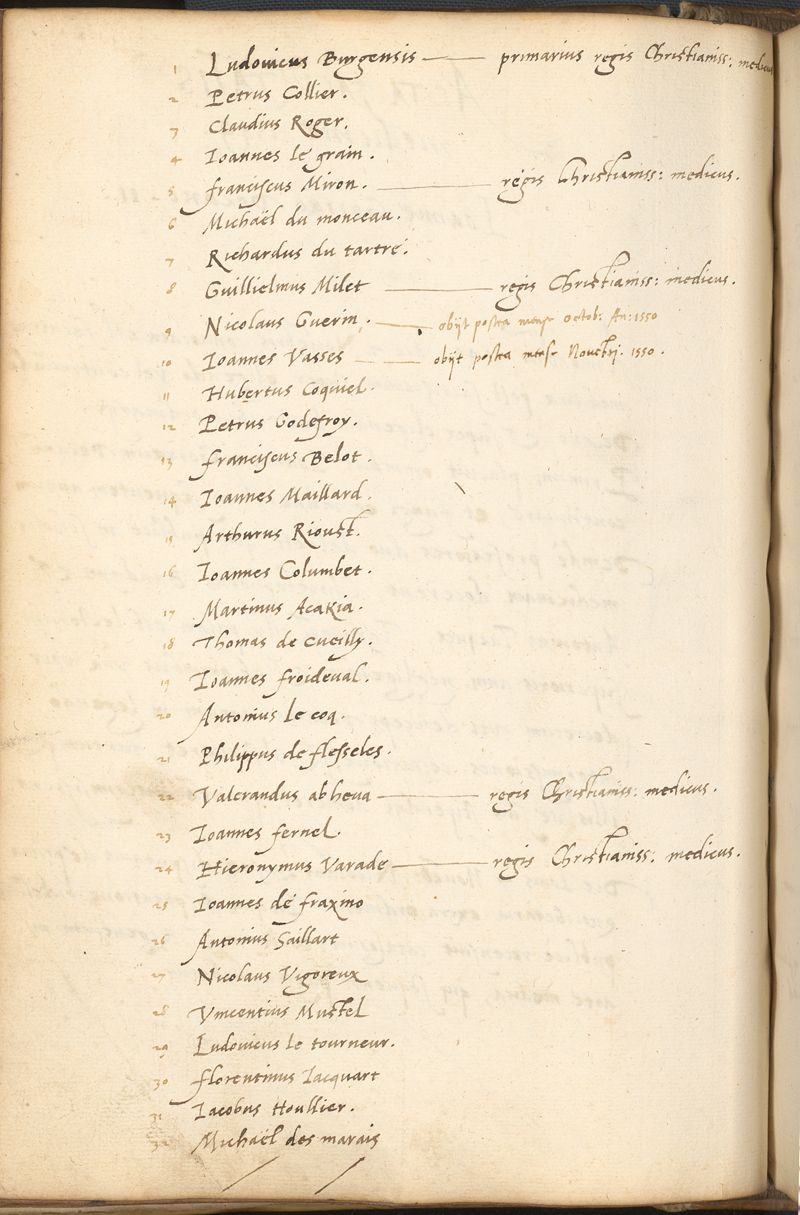 1 Ludovicus Burgensis — primarius regis Christianiss: medicus
2 Petrus Collier.
3 Claudius Roger.
4 Ioannes le grain.
5 franciscus Miron. — regis Christianiss: medicus.
6 Michaël du monceau.
7 Richardus du tartre.
8 Guillielmus Milet — regis Christianiss: medicus.
9 Nicolaus Guerin, — obijt postea mense octob: An: 1550
10 Ioannes Vasses — obijt postea mense Novebrj. 1550.
11 Hubertus Coquiel.
12 Petrus Godefroy.
13 franciscus Belot.
14 Ioannes Maillard.
15 Arthurus Rioust.
16 Ioannes Columbet.
17 Martinus Acakia.
18 Thomas de Cueilly.
19 Ioannes froideval.
20 Antonius le coq.
21 Philippus de flesseles.
22 Valerandus ab heva — regis Christianiss: medicus.
23 Ioannes fernel.
24 Hieronymus Varade — regis Christianiss: medicus.
25 Ioannes de fraxino
26 Antonius Saillart
27 Nicolaus Vigoreux
28 Vincentius Mustel
29 Ludovicus le tourneur.
30 florentinus Iacquart
31 Iacobus Houllier.
32 Michaël des marais